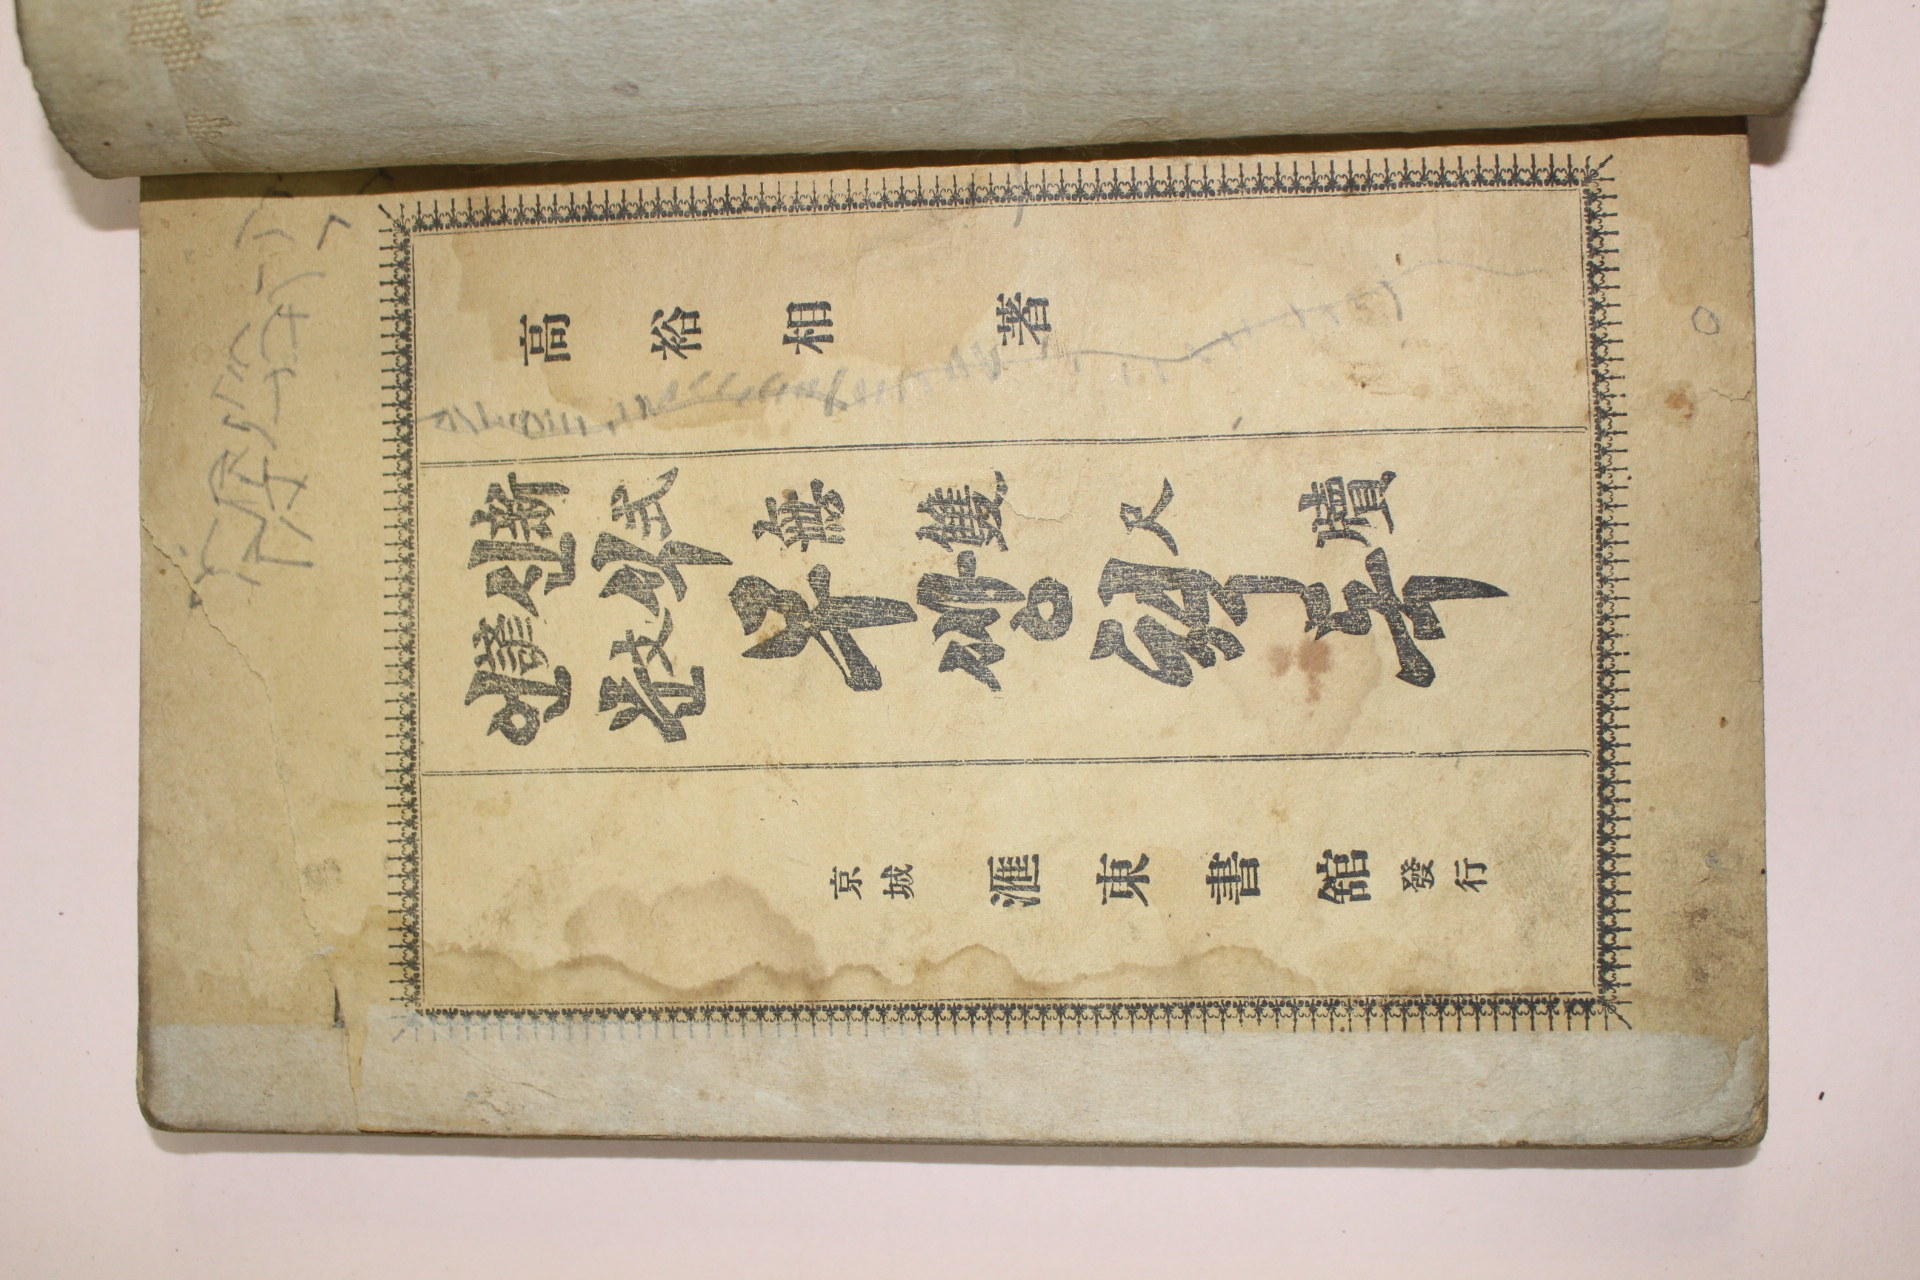 高裕相 著
新式 諺文
無雙尺牘
신식 언문
무쌍척독
京城 滙東書舘 發行